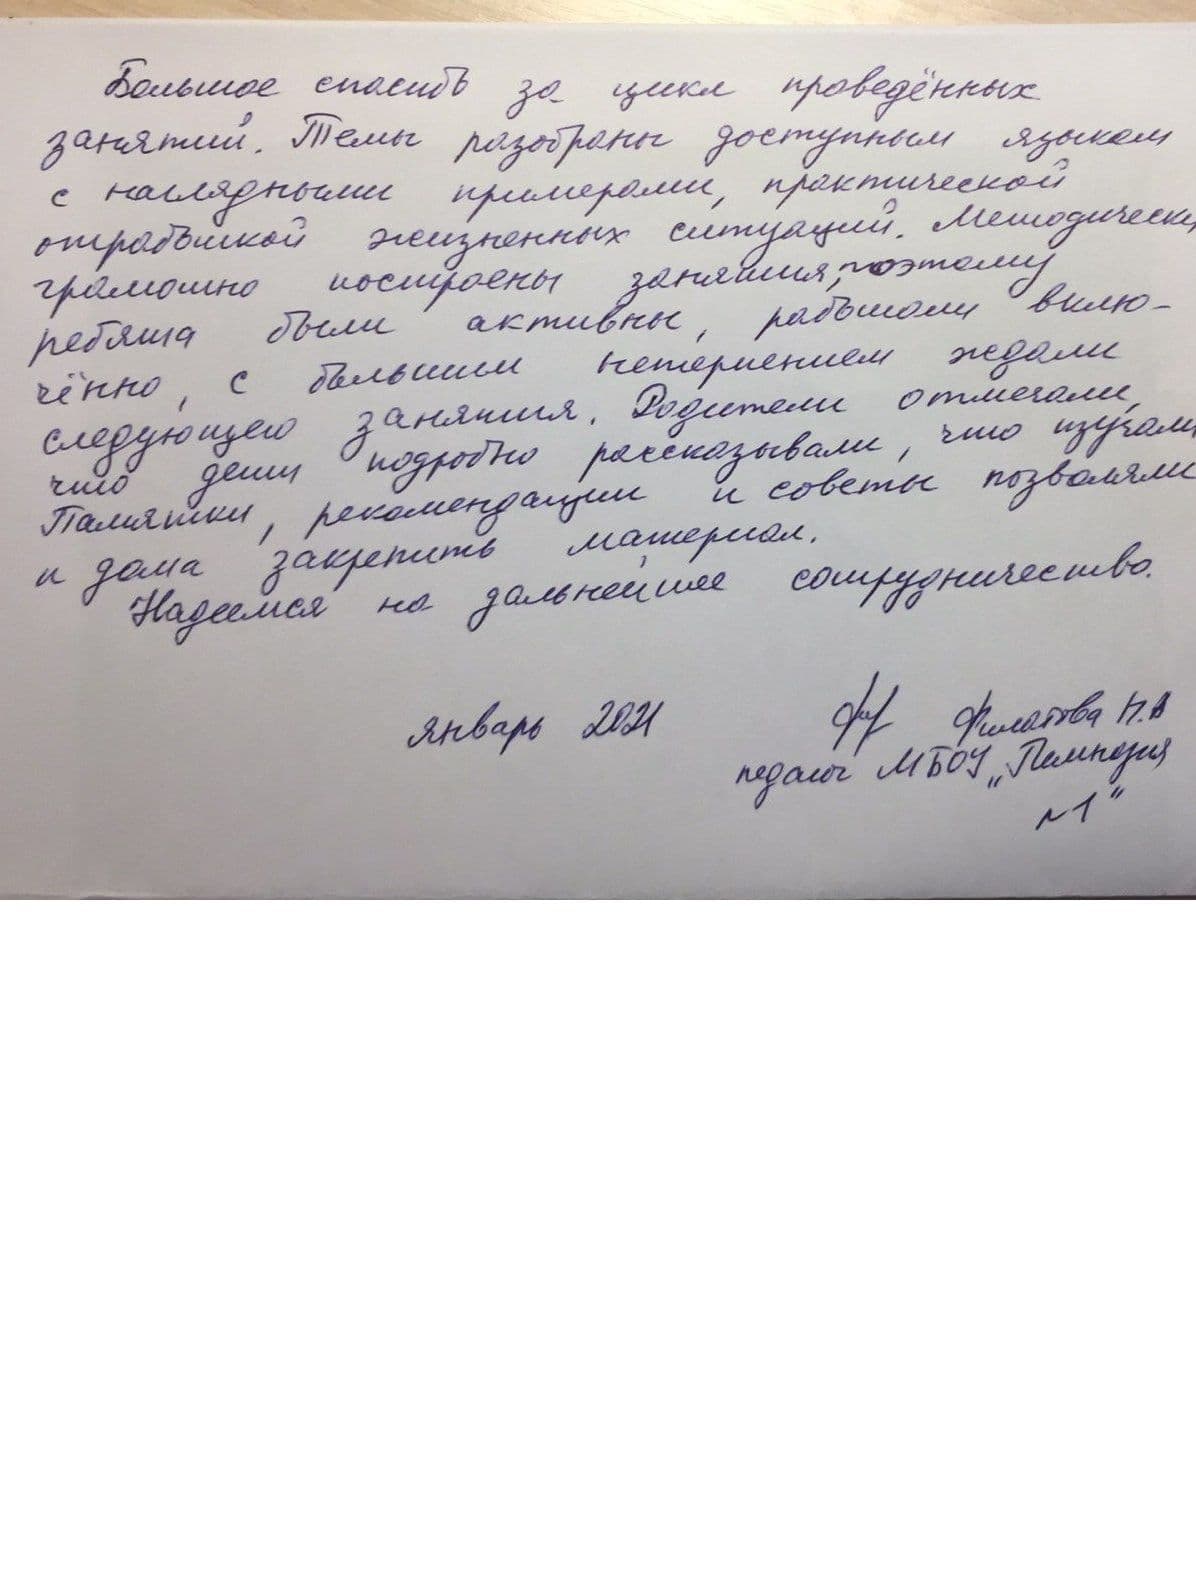 Большое спасибо за цикл проведённых
занятий. Темы разобраны доступным языком
с наглядными примерами, практической
отработкой жизненных ситуаций. Методически
грамотно построены занятия, поэтому
ребята были активны, работали вклю-
чённо, с большим нетерпением ждали
следующего занятия. Родители отмечали,
что дети подробно рассказывали, что изучали
Памятки, рекомендации и советы позволяли
и дома закрепить материал.
Надеемся на дальнейшее сотрудничество.
январь 2021 Филатова Н.А
педагог МБОУ „Гимназия
№1"